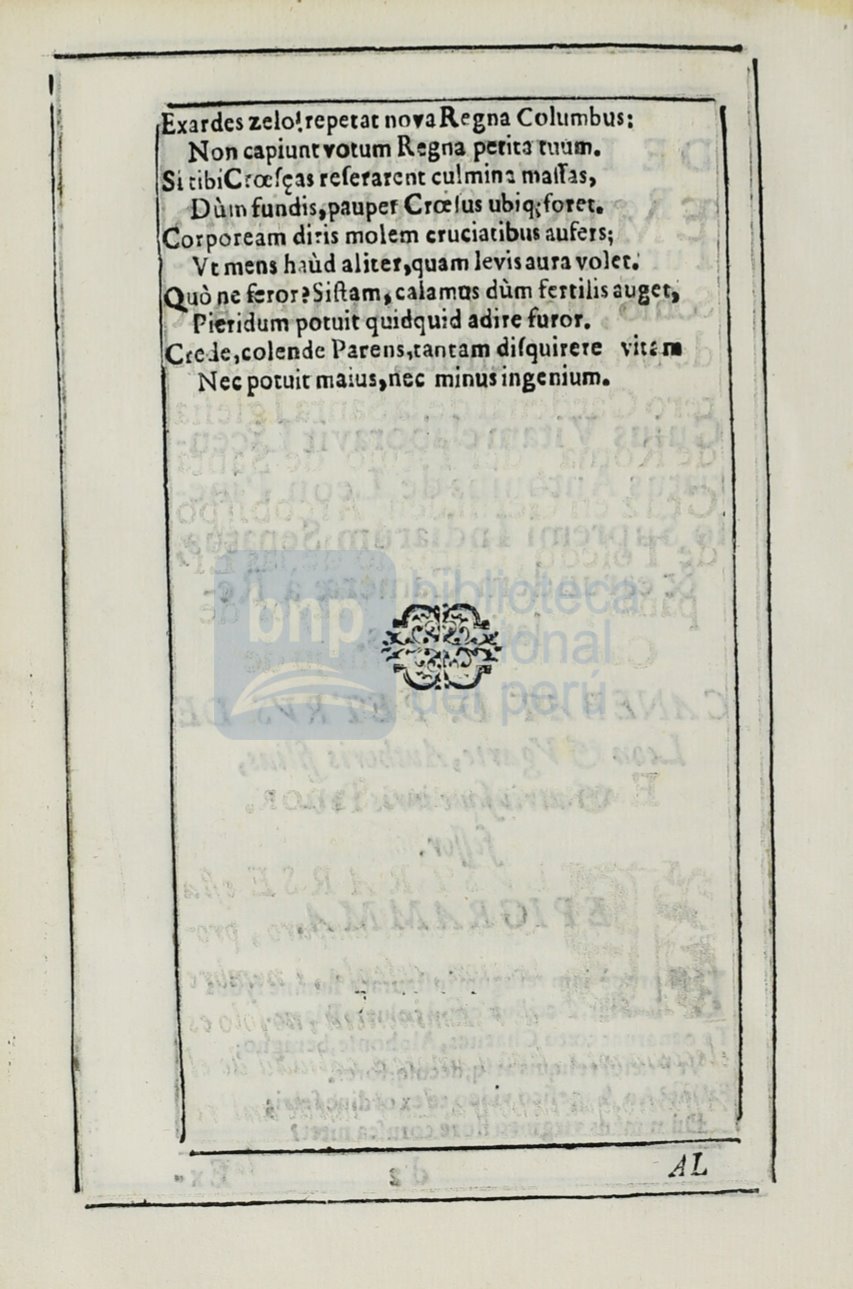 Exardes zelo! repetat nova Regna Columbus:
Non capiunt votum Regna petita tuum.
Si tibi Crœsęas reserarent culmina massas,
Dùm fundis, pauper Crœsus ubiq; foret.
Corpoream diris molem cruciatibus aufers;
Vt mens haùd aliter, quam levis aura volet.
Quò ne feror? Sistam, calamos dùm fertilis auget,
Pieridum potuit quidquid adire furor.
Crede, colende Parens, tantam disquirere vitam
Nec potuit maius, nec minus ingenium.
bnp biblioteca
nacional
del perú
AL